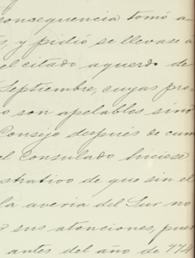 consequencia tomó a
s, y pidió se llevase a
el citado aquerdo de
Septiembre, cuyas pro
o son apelables sino
Consejo despues de cum
el consulado hiciese
strativo de que sin el
la averia del Sur no
a sus atenciones, pues
antes del año de 77